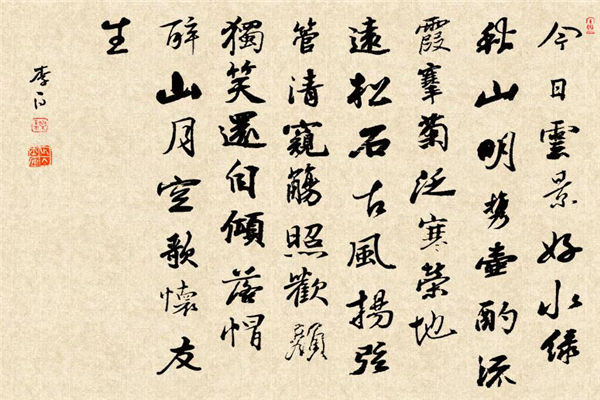 今日雲景好水綠
秋山明攜壺酌流
霞搴菊泛寒榮地
遠松石古風揚弦
管清窺觴照歡顏
獨笑還自傾落帽
醉山月空歌懷友
生
李